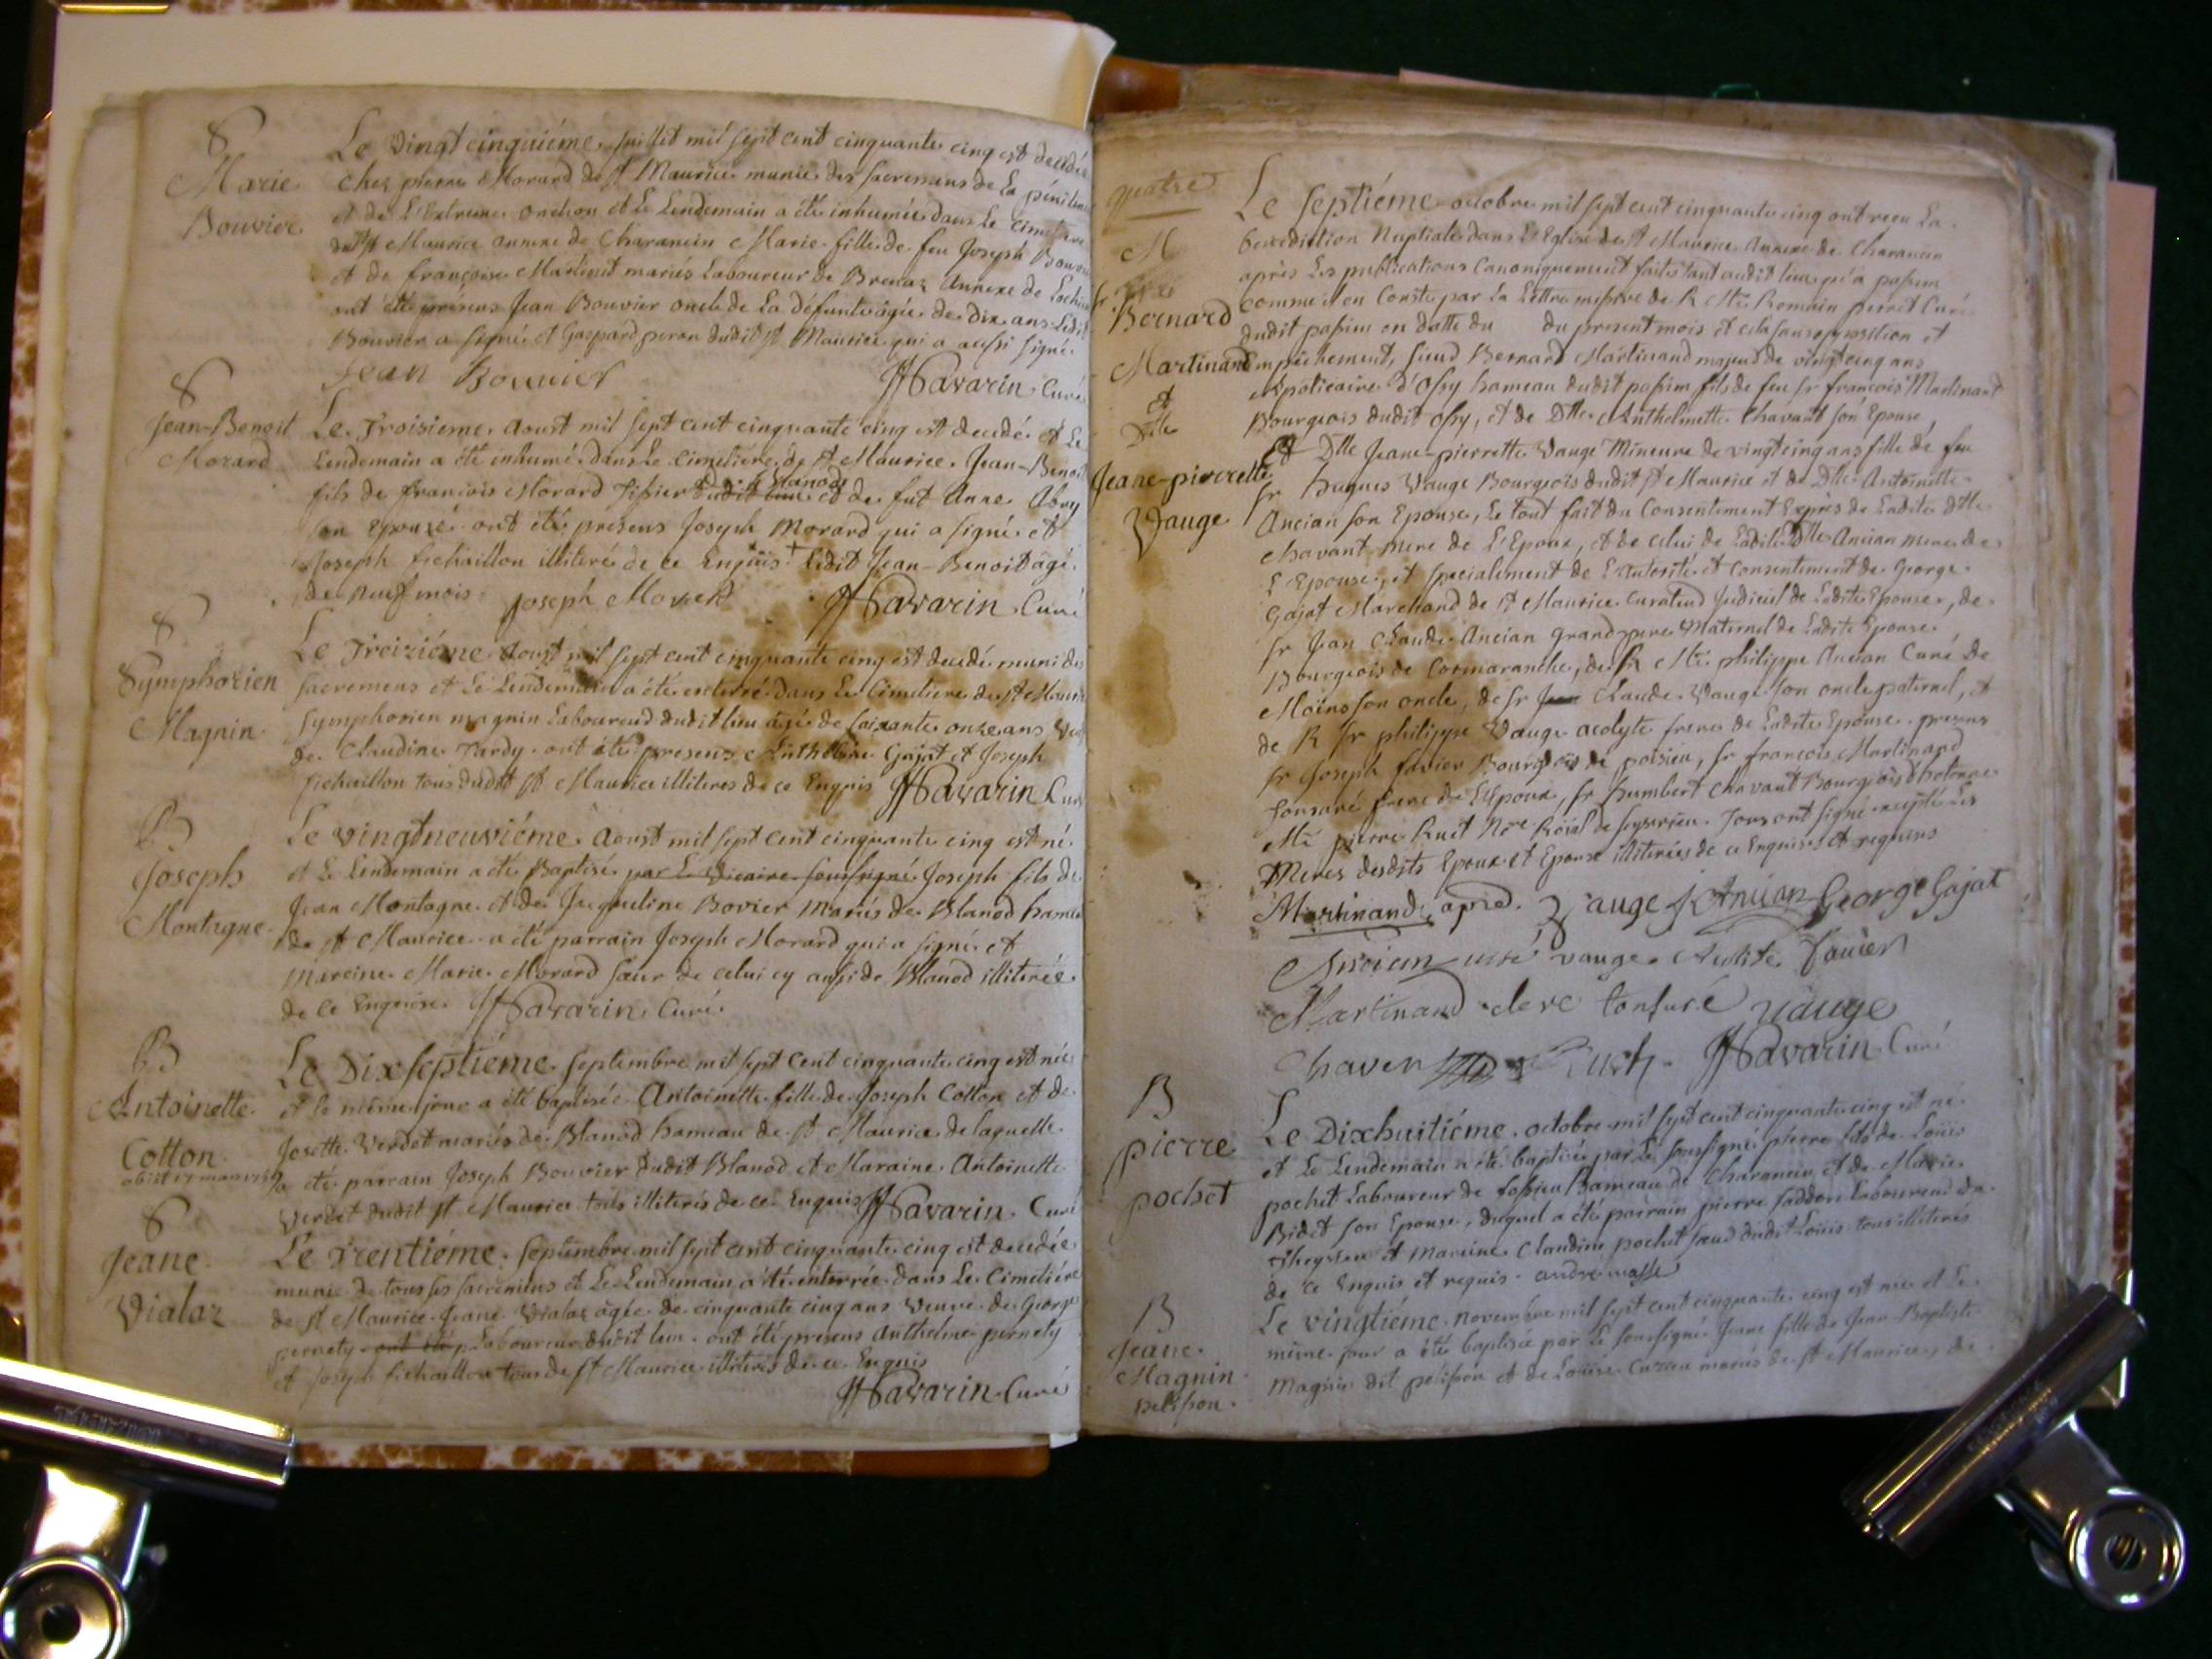 S
Marie
Bouvier
Le vingt cinquiéme juillet mil sept cent cinquante cinq est decedée
chez pierre Morard de st Maurice munie des sacremans de La pénitence
et de L'Extreme onction et Le Lendemain a été inhumée dans Le cimetiere
dudit st Maurice annexe de Charancin Marie fille de feu Joseph Bouvier
et de françoise Martinet mariés Laboureur de Brenaz Annexe de
ont été présens Jean Bouvier oncle de La défunte agée de dix ans Ledit
Bouvier a signé et Gaspard peron dudit st Maurice qui a aussi signé
Jean Bouvier
Havarin Curé
S
Jean-Benoit
Morard
Le Troisieme Aoust mil sept cent cinquante cinq est decedé et Le
Lendemain a été inhumé dans Le cimetiére de st Maurice Jean-Benoit
fils de francois Morard Tissier dudit lieu de Blanod et de fut Anne Abry
son Epouse ont été presens Joseph Morard qui a signé et
Joseph fichaillon illiteré de ce Enquis + Ledit Jean-Benoit agé
de neuf mois Joseph Morard Havarin Curé
S
Symphorien
Magnin
Le Treiziéme Aoust mil sept cent cinquante cinq est decedé muni des
sacremens et Le Lendemain a été enterré dans Le Cimetiere de st Maurice
Symphorien magnin Laboureur dudit lieu agé de soixante onze ans
de Claudine Tardy ont été presens Anthelme Gajat et Joseph
fichaillon tous dudit st Maurice illiteres de ce Enquis Havarin Curé
B
Joseph
Montagne
Le vingtneuviéme Aoust mil sept cent cinquante cinq est né
et Le Lendemain a été Baptisé par Le Vicaire soussigné Joseph fils de
Jean Montagne et de Jacqueline Bovier Mariés de Blanod hameau
de st Maurice a été parrain Joseph Morard qui a signé et
Mareine Marie Morard sœur de celui cy aussi de Blanod illiterée
de ce Enquise Havarin Curé
B
Antoinette
Cotton
Le Dixseptiéme septembre mil sept cent cinquante cinq est née
et le même jour a été baptisée Antoinette fille de Joseph Cotton et de
Josette Verdet mariés de Blanod hameau de st Maurice de laquelle
a été parrain Joseph Bouvier dudit Blanod et Maraine Antoinette
Verdet dudit st Maurice tous illiterés de ce Enquis Havarin Curé
S
Jeane
Vialaz
Le Trentiéme Septembre mil sept cent cinquante cinq est decedée
munie de tous ses sacremens et Le Lendemain a été enterrée dans Le Cimetiére
de st Maurice Jeane Vialaz agée de cinquante cinq ans Veuve de George
pernety ont été Laboureur dudit lieu ont été presens Anthelme pernety
et Joseph fichaillon tous de st Maurice illiteres de ce Enquis
Havarin Curé
quatre
M
sr
Bernard
Martinand
et
Dlle
Jeane-pierrette
Vauge
Le Septiéme octobre mil sept cent cinquante cinq ont recu La
benediction Nuptiale dans L'Eglise de st Maurice Annexe de Charancin
après Les publications Canoniquement faites tant audit lieu qu'a passim
comme il en Conste par La Lettre missive de R Mre Romain perret Curé
dudit passim en datte du du present mois et cela sans opposition et
empéchement, sieur Bernard Martinand majeur de vingt cinq ans
Apoticaire d'Ossy hameau dudit passim fils de feu sr françois Martinand
Bourgeois dudit Ossy, et de Dlle Anthelmette Chavant son Epouse,
et Dlle Jeane-pierrette Vauge Mineure de vingt cinq ans fille de feu
sr hugues Vauge Bourgeois dudit st Maurice et de Dlle Antoinette
Ancian son Epouse, Le tout fait du Consentement Exprès de Ladite Dlle
Chavant mere de L'Epoux, et de celui de Ladite Dlle Ancian mere de
L'Epouse, et specialement de L'Autorité et Consentement de George
Gajat Marchand de st Maurice Curateur Judiciel de Ladite Epouse, de
sr Jean Claude Ancian grand pere Maternel de Ladite Epouse
Bourgeois de Cormaranche, de R Mre philippe Ancian Curé de
son oncle, de sr Jean Claude Vauge son oncle paternel, et
de R sr philippe Vauge acolyte frere de Ladite Epouse presens
sr Joseph favier Bourgeois de poisieu, sr francois Martinand
Tonsuré frere de L'Epoux, sr humbert Chavant Bourgeois d'hotonne
Me pierre Ruet Nore Roial de Tous ont signé excepté Les
Meres desdits Epoux et Epouse illiterées de ce Enquises et requises
Martinand Vauge J Ancian George Gajat
Ancian curé vauge favier
Martinand clerc tonsuré vauge
Chavent Havarin Curé
B
pierre
pochet
Le Dixhuitiéme octobre mil sept cent cinquante cinq est né
et Le Lendemain a été baptisé par Le soussigné pierre fils de Loüis
pochet Laboureur de fossieu hameau de Charancin et de Marie
Bidet son Epouse, duquel a été parrain pierre Laboureur de
et Mareine Claudine pochet sœur dudit Loüis tous illiterés
de ce Enquis et requis
B
Jeane
Magnin
pelisson
Le vingtiéme novembre mil sept cent cinquante cinq est née et Le
même jour a été baptisée par Le soussigné Jeane fille de Jean-Baptiste
Magnin dit pelisson et de Loüise mariés de st Maurice, de